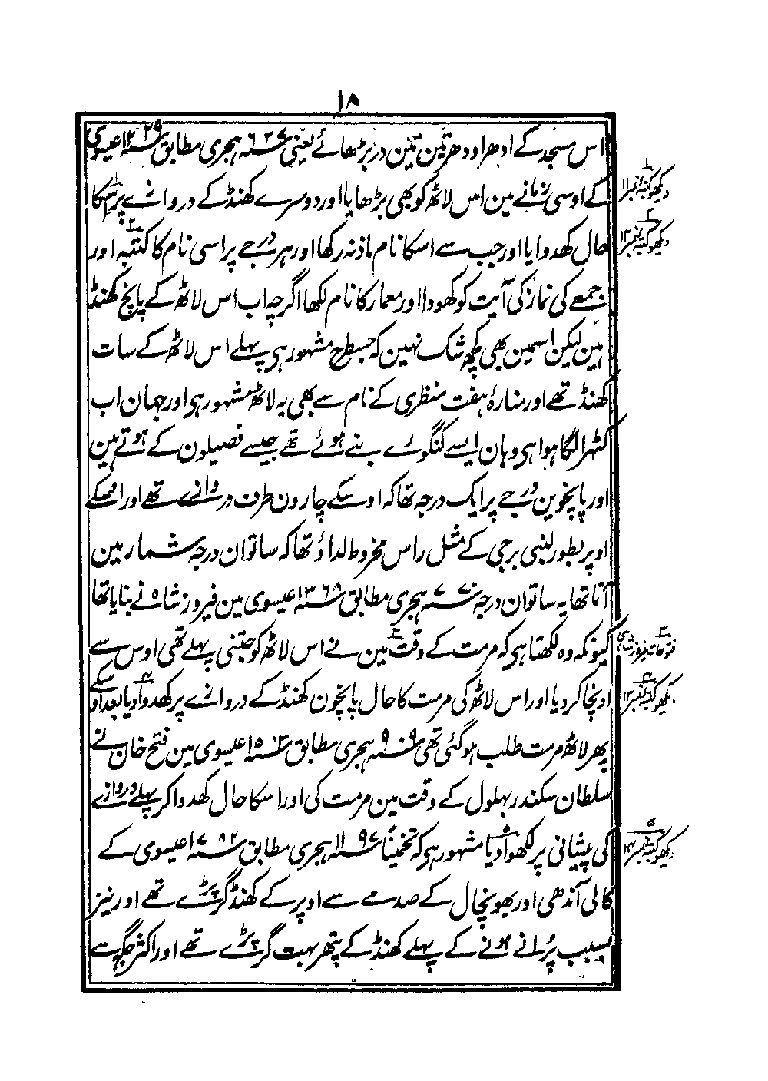 ۱۸
اس مسجد کے ادھر اودھر تین تین در بڑھائے یعنی ۶۲۷ سنہ ہجری مطابق ۱۲۲۹ سنہ عیسوی
کے اوسی زمانے مین اس لاٹھ کو بھی بڑھایا اور دوسرے کھنڈ کے دروازے پر اسکا
دیکھو کتبہ نمبر ۱۱
حال کھدوایا اور جب سے اسکا نام ماذنہ رکھا اور ہر درجے پر اسی نام کا کتبہ اور
دیکھو کتبہ نمبر ۱۲
جمعے کی نماز کی آیت کو کھودا اور معمار کا نام لکھا اگرچہ اب اس لاٹھ کے پانچ کھنڈ
ہین لیکن اسمین بھی کچھ شک نہین کہ جسطرح مشہور ہی پہلے اس لاٹھ کے سات
کھنڈ تھے اور منارۂ ہفت منظری کے نام سے بھی یہ لاٹھ مشہور ہی اور جہان اب
کٹہرا لگا ہوا ہی وہان ایسے کنگورے بنے ہوئے تھے جیسے فصیلون کے ہوتے ہین
اور پانچوین درجے پر ایک درجہ تھا کہ اوسکے چارون طرف دروازے تھے اور اوسکے
اوپر بطور لنبی برجی کے مثل راس مخروط لداؤ تھا کہ ساتوان درجہ شمار مین
آتا تھا یہ ساتوان درجہ ۷۷۰ سنہ ہجری مطابق ۱۳۶۸ سنہ عیسوی مین فیروز شاہ نے بنایا تھا
کیونکہ وہ لکھتا ہی کہ مرمت کے وقت مین نے اس لاٹھ کو جتنی پہلے تھی اوس سے
فتوحات فیروز شاہی
اونچا کر دیا اور اس لاٹھ کی مرمت کا حال پانچون کھنڈ کے دروازے پر کھدوا دیا بعد اوسکے
دیکھو کتبہ نمبر ۱۳
پھر لاٹھ مرمت طلب ہو گئی تھی ۹۰۹ سنہ ہجری مطابق ۱۵۰۳ سنہ عیسوی مین فتح خان نے
سلطان سکندر بہلول کے وقت مین مرمت کی اور اسکا حال کھدوا کر پہلے دروازے
کی پیشانی پر لکھوا دیا مشہور ہی کہ تخمیناً ۱۱۹۷ سنہ ہجری مطابق ۱۷۸۲ سنہ عیسوی کے
دیکھو کتبہ نمبر ۱۴
کالی آندھی اور بھونچال کے صدمے سے اوپر کے کھنڈ گر پڑے تھے اور نیز
بسبب پرانے ہونے کے پہلے کھنڈ کے پتھر بہت گر پڑے تھے اور اکثر جگہ سے